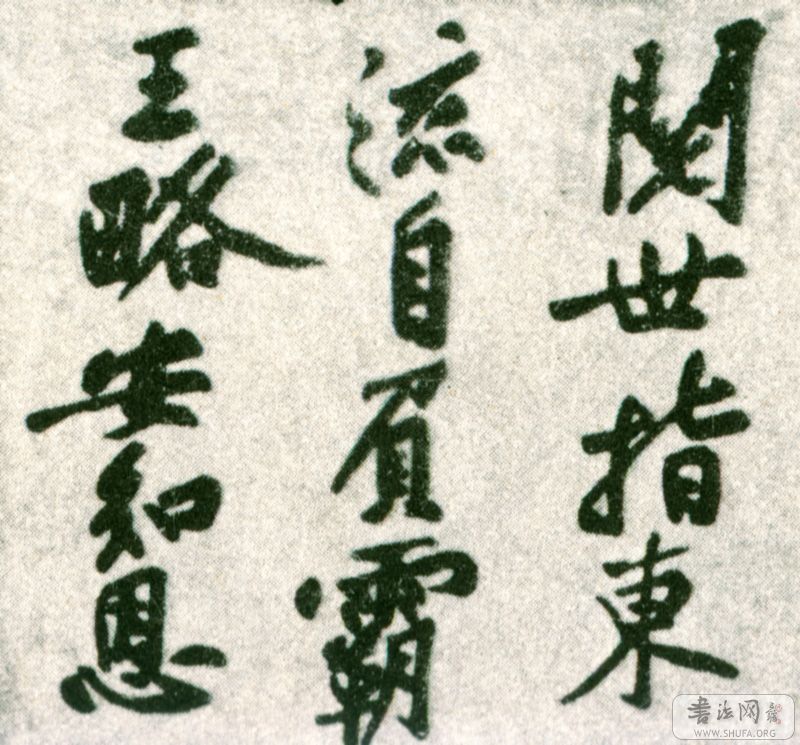 閱世指東
流自負霸
王略安知恩
書法网
WWW.SHUFA.ORG